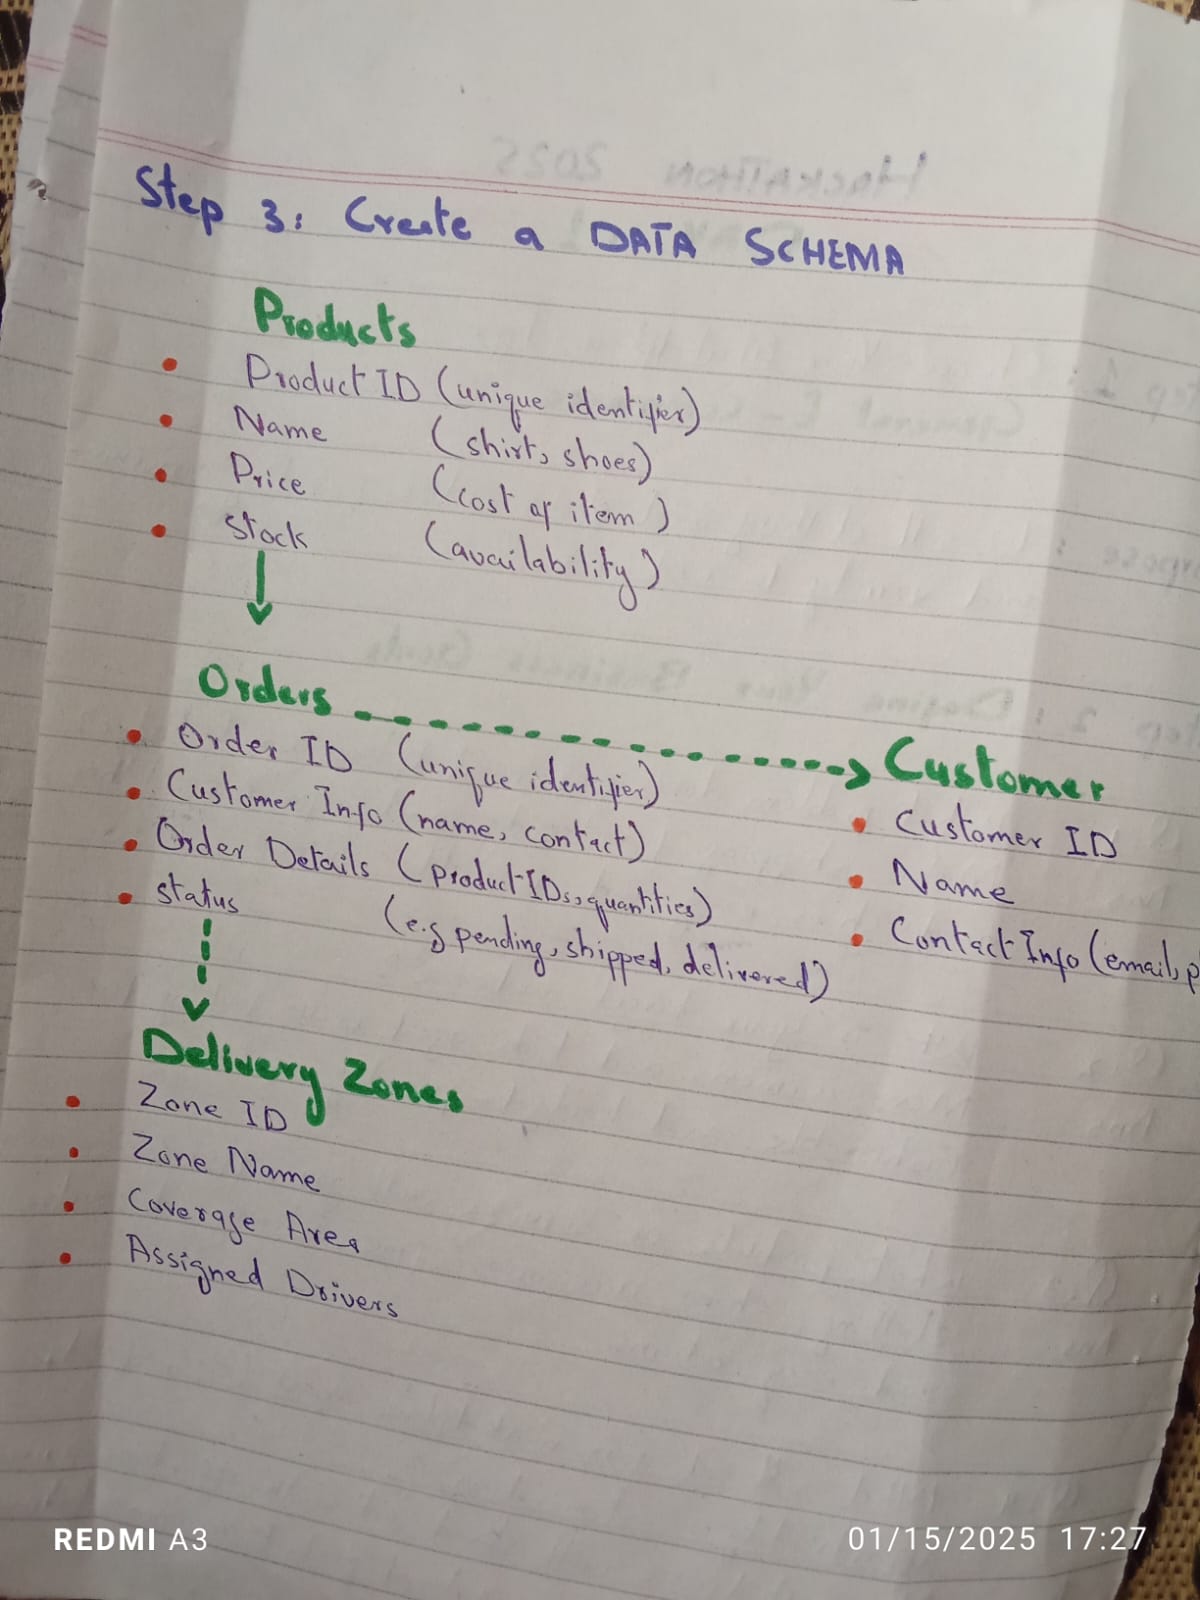 Step 3: Create a DATA SCHEMA
Products
• Product ID (unique identifier)
• Name (shirt, shoes)
• Price (cost of item)
• Stock (availability)
Orders
• Order ID (unique identifier)
• Customer Info (name, contact)
• Order Details (product IDs, quantities)
• status (e.g pending, shipped, delivered)
Customer
• Customer ID
• Name
• Contact Info (email, p
Delivery Zones
• Zone ID
• Zone Name
• Coverage Area
• Assigned Drivers
REDMI A3
01/15/2025 17:27